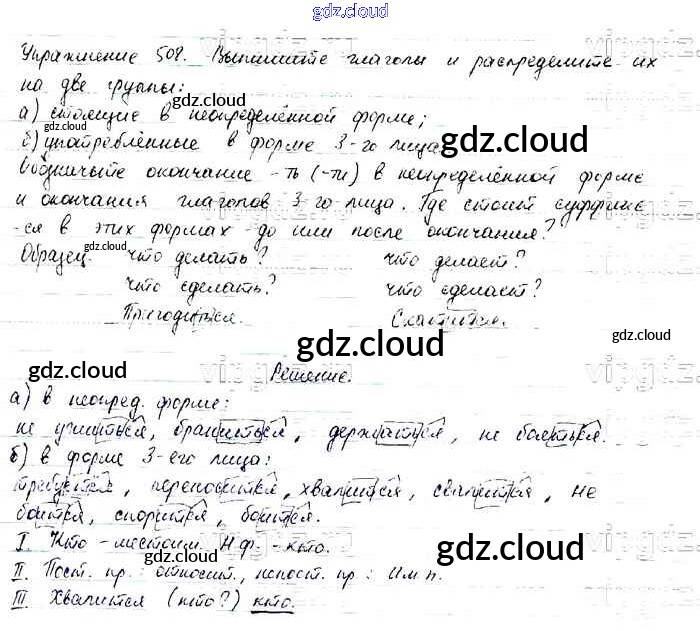 gdz.cloud
Упражнение 508. Выпишите глаголы и распределите их
на две группы:
а) стоящие в неопределённой форме;
б) употреблённые в форме 3-го лица.
Обозначьте окончание -ть (-ти) в неопределённой форме
и окончания глаголов 3-го лица. Где стоит суффикс
-ся в этих формах - до или после окончания?
Образец. что делать? что делает?
что сделать? что сделает?
Пригодиться. Скатится.
gdz.cloud
Решение.
а) в неопред. форме:
не учиться, браниться, держаться, не бояться.
б) в форме 3-его лица:
требуется, переносится, хвалится, свалится, не
боится, спорится, боится.
I. Кто - местоим. Н.ф. - кто.
gdz.cloud
II. Пост. пр.: относит., непост. пр.: Им.п.
III. Хвалится (кто?) кто.
gdz.cloud